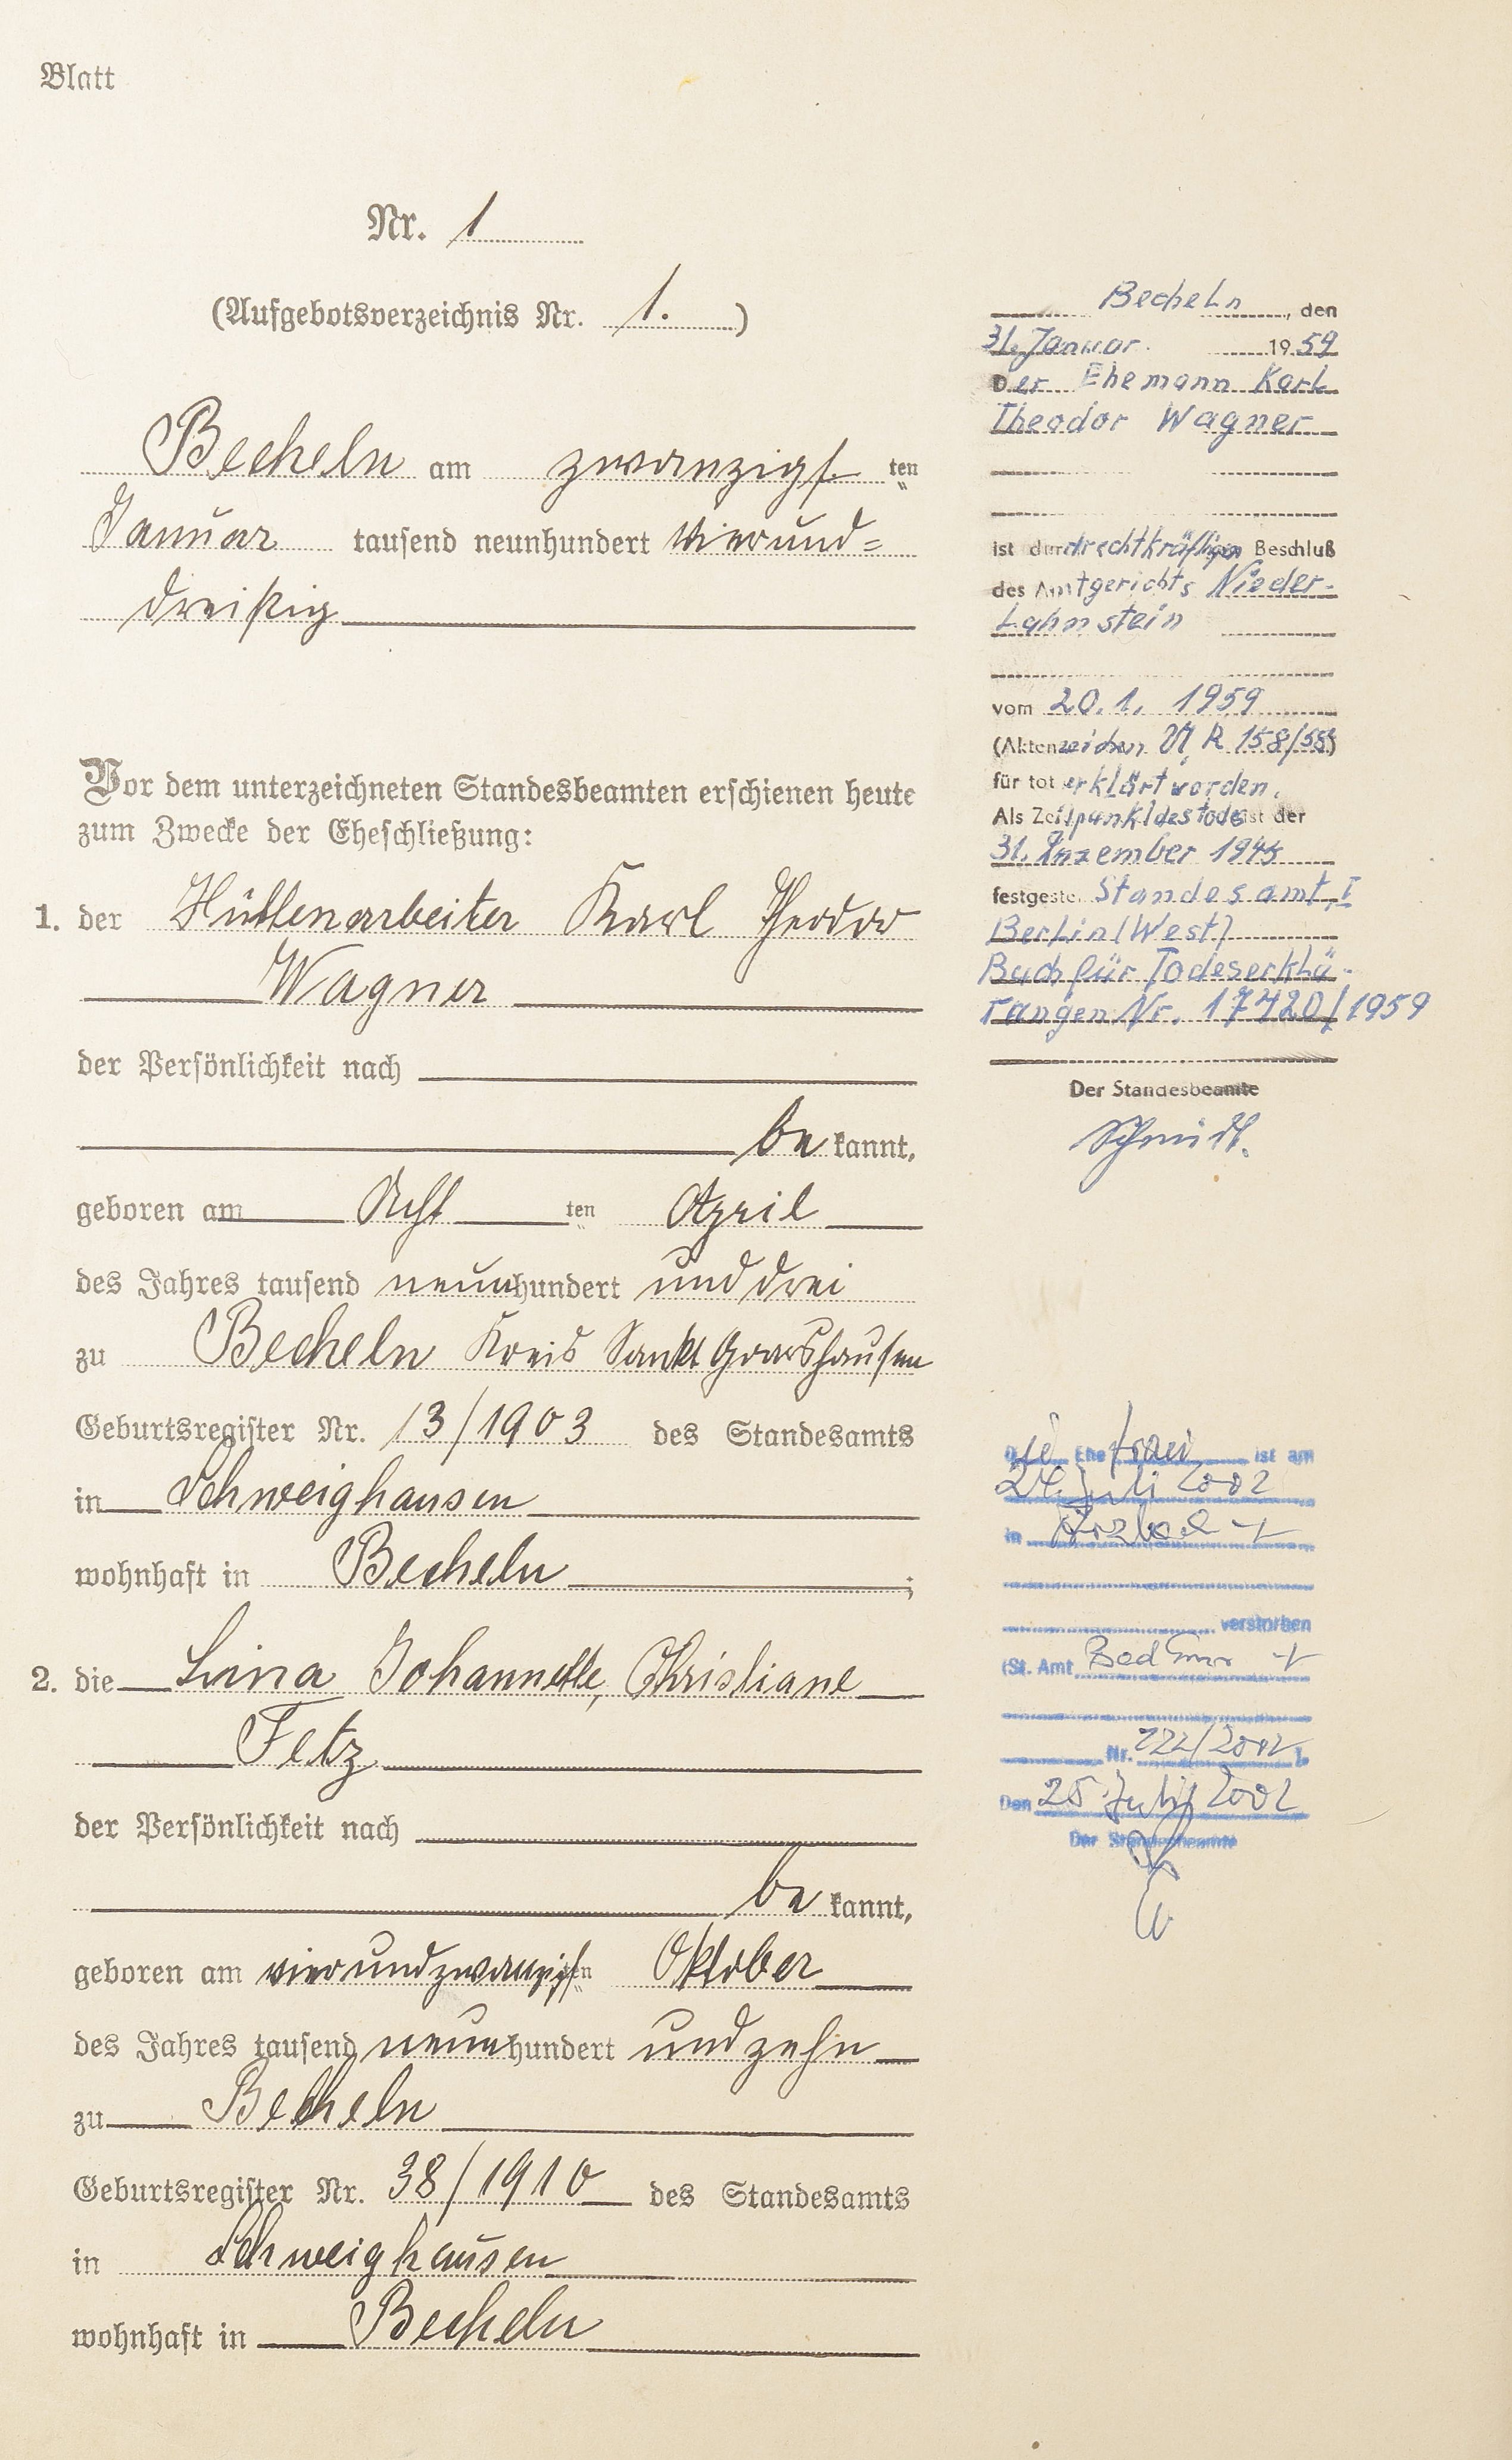 Blatt
Nr. 1
(Aufgebotsverzeichnis Nr. 1.)
Becheln am zwanzigs ten
Januar tausend neunhundert vierund=
dreißig
Vor dem unterzeichneten Standesbeamten erschienen heute
zum Zwecke der Eheschließung:
1. der Hüttenarbeiter Karl Theodor
Wagner
der Persönlichkeit nach
be kannt,
geboren am Acht ten April
des Jahres tausend neunhundert und drei
zu Becheln Kreis Sankt Goarshausen
Geburtsregister Nr. 13/1903 des Standesamts
in Schweighausen
wohnhaft in Becheln ;
2. die Lina Johannette, Christiane
Fetz
der Persönlichkeit nach
be kannt,
geboren am vierundzwanzigsten Oktober
des Jahres tausend neunhundert und zehn
zu Becheln
Geburtsregister Nr. 38/1910 des Standesamts
in Schweighausen
wohnhaft in Becheln
Becheln, den
31. Januar. 1959
Der Ehemann Karl
Theodor Wagner
ist durch rechtkräftigen Beschluß
des Amtgerichts Nieder-
Lahnstein
vom 20. 1. 1959
(Aktenzeichen VI R 158/58)
für tot erklärt worden.
Als Zeitpunkt des Todes ist der
31. Dezember 1945
festgeste. Standesamt I
Berlin (West)
Buch für Todeserklä-
rungen Nr. 17420/1959
Der Standesbeamte
Schmidt.
Die Ehefrau ist am
24. Juli 2002
in
verstorben
(St. Amt Bad Ems
Nr. 122/2002 ).
Den 25. Juli 2002
Der Standesbeamte